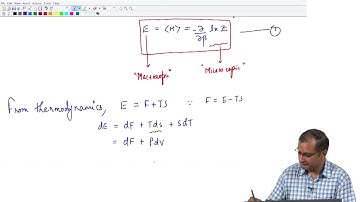 E = ⟨H⟩ = -∂/∂β ln Z — ①
"Macroscopic" "Microscopic"
From thermodynamics, E = F + TS ∵ F = E - TS
dE = dF + Tds + SdT
= dF + Pdv